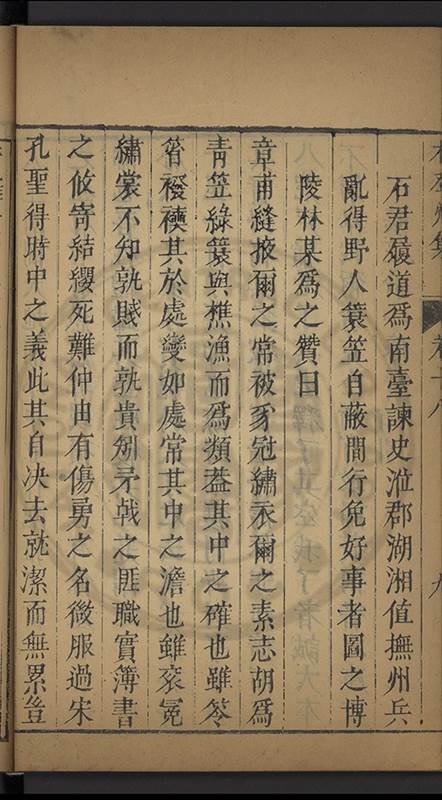 石君履道爲南臺諫史涖郡湖湘值撫州兵
亂得野人簑笠自蔽間行免好事者圖之博
陵林某爲之贊曰
章甫縫掖爾之常被豸冠繡衣爾之素志胡爲
靑笠綠簑與樵漁而爲類葢其中之確也雖笭
箵襏襫其於處變如處常其中之澹也雖衮冕
繡裳不知孰賤而孰貴矧矛戟之匪職實簿書
之攸寄結纓死難仲由有傷勇之名微服過宋
孔聖得時中之義此其自决去就潔而無累豈